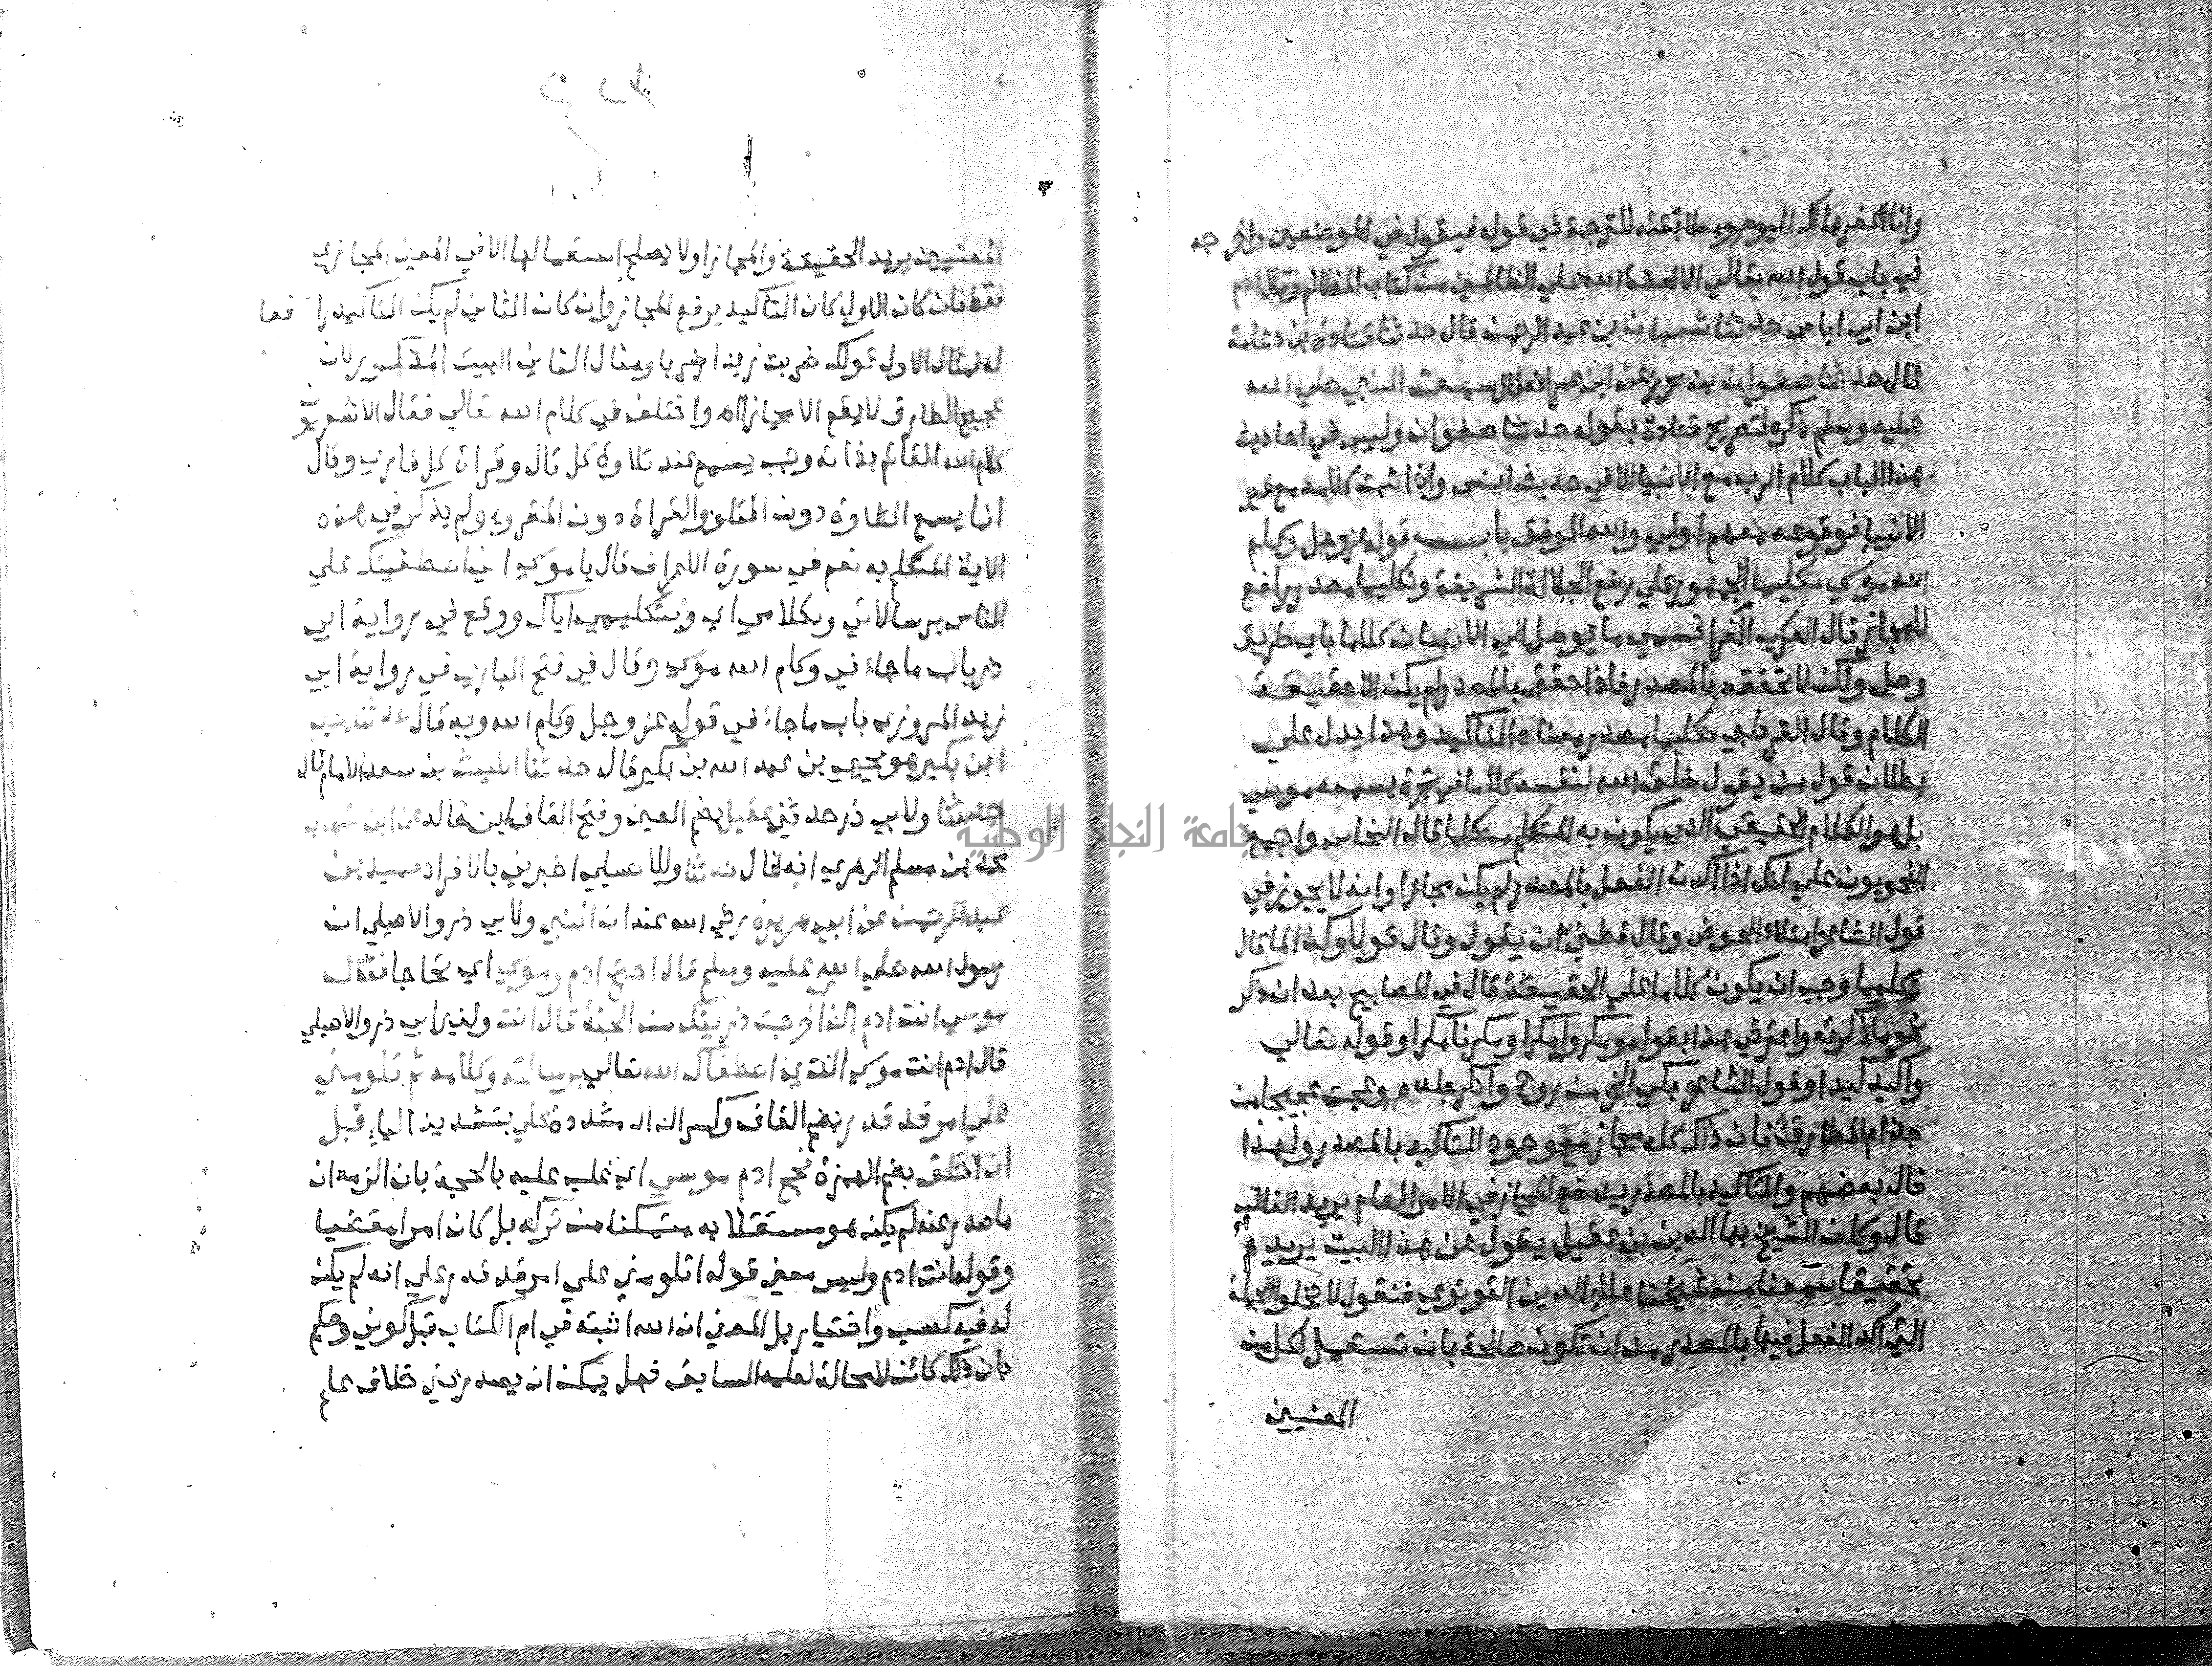 وانا اغفرها لك اليوم ومطابقته للترجمة في قوله فيقول في الموضعين واخرجه
في باب قول الله تعالي الا لعنة الله علي الظالمين من كتاب المظالم وقال ادم
ابن ابي اياس حدثنا شيبان بن عبد الرحمن قال حدثنا قتادة بن دعامة
قال حدثنا صفوان بن محرز عن ابن عمر انه قال سمعت النبي صلي الله
عليه وسلم ذكره لتصريح قتادة بقوله حدثنا صفوان وليس في احاديث
هذا الباب كلام الرب مع الانبيا الا في حديث انس واذا ثبت كلامه مع غير
الانبيا فوقوعه معهم اولي والله الموفق باب قوله عز وجل وكلم
الله موسي تكليما الجمهور علي رفع الجلالة الشريفة وتكليما مصدر رافع
للمجاز قال الفرا العرب تسمي ما يوصل الي الانسان كلاما باي طريق
وصل ولكن لا تحققه بالمصدر فاذا حقق بالمصدر لم يكن الا حقيقة
الكلام وقال القرطبي تكليما مصدر معناه التاكيد وهذا يدل علي
بطلان قول من يقول خلق الله لنفسه كلاما في شجرة يسمعه موسي
بل هو الكلام الحقيقي الذي يكون به المتكلم متكلما قال النحاس واجمع
النحويون علي انك اذا اكدت الفعل بالمصدر لم يكن مجازا وانه لا يجوز في
قول الشاعر امتلاء الحوض وقال قطني ان يقول وقال قولا وكذا لما قال
تكليما وجب ان يكون كلاما علي الحقيقة قال في المصابيح بعد ان ذكر
نحو ما ذكرته واعترض هذا بقوله ومكروا مكرا ومكرنا مكرا وقوله تعالي
واكيد كيدا وقول الشاعر بكي الخز من روح وانكر جلده وعجت عجيجا من
جذام المطارف فان ذلك كله مجاز مع وجود التاكيد بالمصدر ولهذا
قال بعضهم والتاكيد بالمصدر يرفع المجاز في الامر العام يريد الغالب
قال وكان الشيخ بها الدين بن عقيل يقول عن هذا البيت يريد
تحقيقا سمعناه من شيخنا علاء الدين القونوي فنقول لا تخلو الجملة
التي اكد الفعل فيها بالمصدر من ان تكون صالحة بان تستعمل لكل من
المعنيين
المعنيين يريد الحقيقة والمجاز او لا يصلح استعمالها الا في المعني المجازي
فقط فان كان الاول كان التاكيد يرفع المجاز وان كان الثاني لم يكن التاكيد رافعا
له فمثال الاول قولك ضربت زيدا ضربا ومثال الثاني البيت المذكور لان
عجيج المطارف لا يقع الا مجازا اه واختلف في كلام الله تعالي فقال الاشعري
كلام الله القائم بذاته يسمع عند تلاوة كل تال وقراة كل قاري وقال
انما يسمع التلاوة دون المتلو والقراة دون المقرو ولم يذكر في هذه
الاية المتكلم به نعم في سورة الاعراف قال يا موسي اني اصطفيتك علي
الناس برسالاتي وبكلامي اي وبتكليمي اياك ووقع في رواية ابي
ذر باب ما جاء في وكلم الله موسي وقال في فتح الباري في رواية ابي
زيد المروزي باب ما جاء في قوله عز وجل وكلم الله وبه قال حدثنا يحيي
ابن بكير هو يحيي بن عبد الله بن بكير قال حدثنا الليث بن سعد الامام قال
حدثنا ولابي ذر حدثني عقيل بضم العين وفتح القاف ابن خالد عن ابن شهاب
محمد بن مسلم الزهري انه قال حدثنا وللاصيلي اخبرني بالافراد حميد بن
عبد الرحمن عن ابي هريرة رضي الله عنه ان النبي ولابي ذر والاصيلي ان
رسول الله صلي الله عليه وسلم قال احتج ادم وموسي اي تحاجا فقال
موسي انت ادم الذي اخرجت ذريتك من الجنة قال انت ولغير ابي ذر والاصيلي
قال ادم انت موسي الذي اصطفاك الله تعالي برسالته وكلامه ثم تلومني
علي امر قد قدر بضم القاف وكسر الدال مشددة علي بتشديد الياء قبل
ان اخلق بضم الهمزة فحج ادم موسي اي غلب عليه بالحجة بان الزمه ان
ما صدر عنه لم يكن هو مستقلا به متمكنا من تركه بل كان امرا مقضيا
وقوله انت ادم وليس معني قوله اتلومني علي امر قد قدر علي انه لم يكن
له فيه كسب واختيار بل المعني ان الله اثبته في ام الكتاب قبل كوني وحكم
بان ذلك كائن لا محالة لعلمه السابق فهل يمكن ان يصدر عني خلاف علم
جامعة النجاح الوطنية